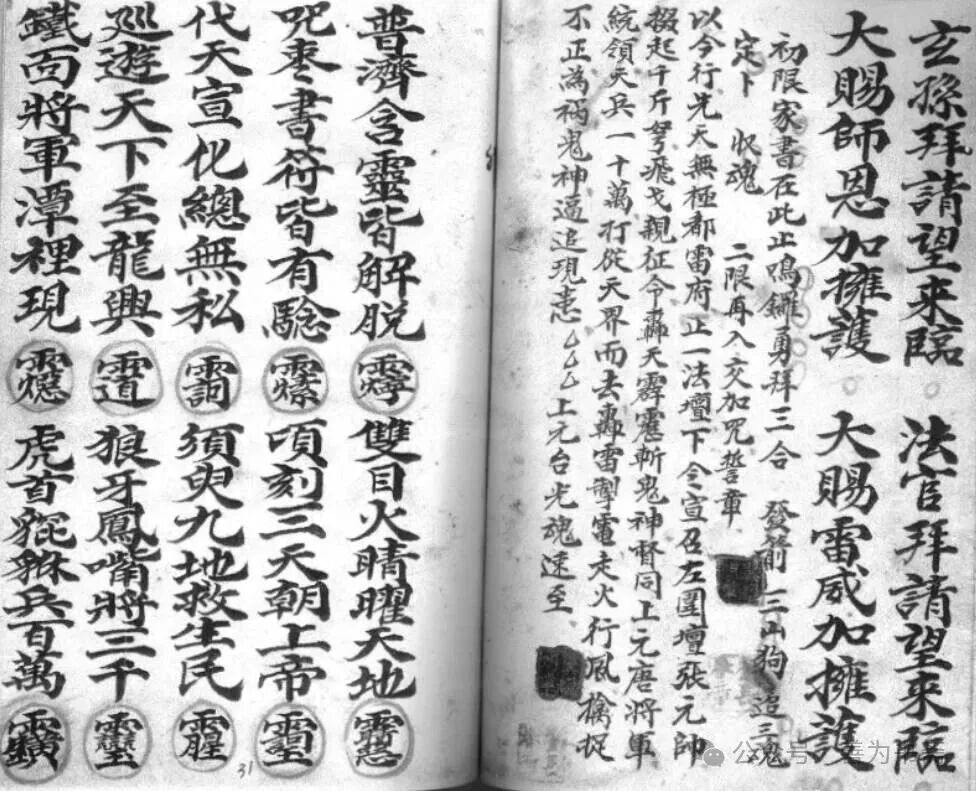 玄孫拜請望来臨 法官拜請望來臨
大賜師恩加擁護 大賜雷威加擁護
初限家書在此止鳴鑼勇拜三合 發箭 三山狗 追三魂
定卜 收魂 二限再入交加咒誓章
以今行先天無極都雷府正一法壇下令宣召左圍壇張元帥
掇起千斤弩飛戈親征令轟天霹靂斬鬼神督同上元唐將軍
統領天兵一十萬打從天界而去轟雷掣電走火行風擒捉
不正為禍鬼神逼追現患 上元台光魂速至
普濟含靈皆解脱 雙目火睛曜天地
咒棗書符皆有騐 頃刻三天朝上帝
代天宣化總無私 須臾九地救生民
廵遊天下至龍興 狼牙鳳嘴將三千
鐵面將軍潭裡現 虎首貔貅兵百萬
31
公众号 善为